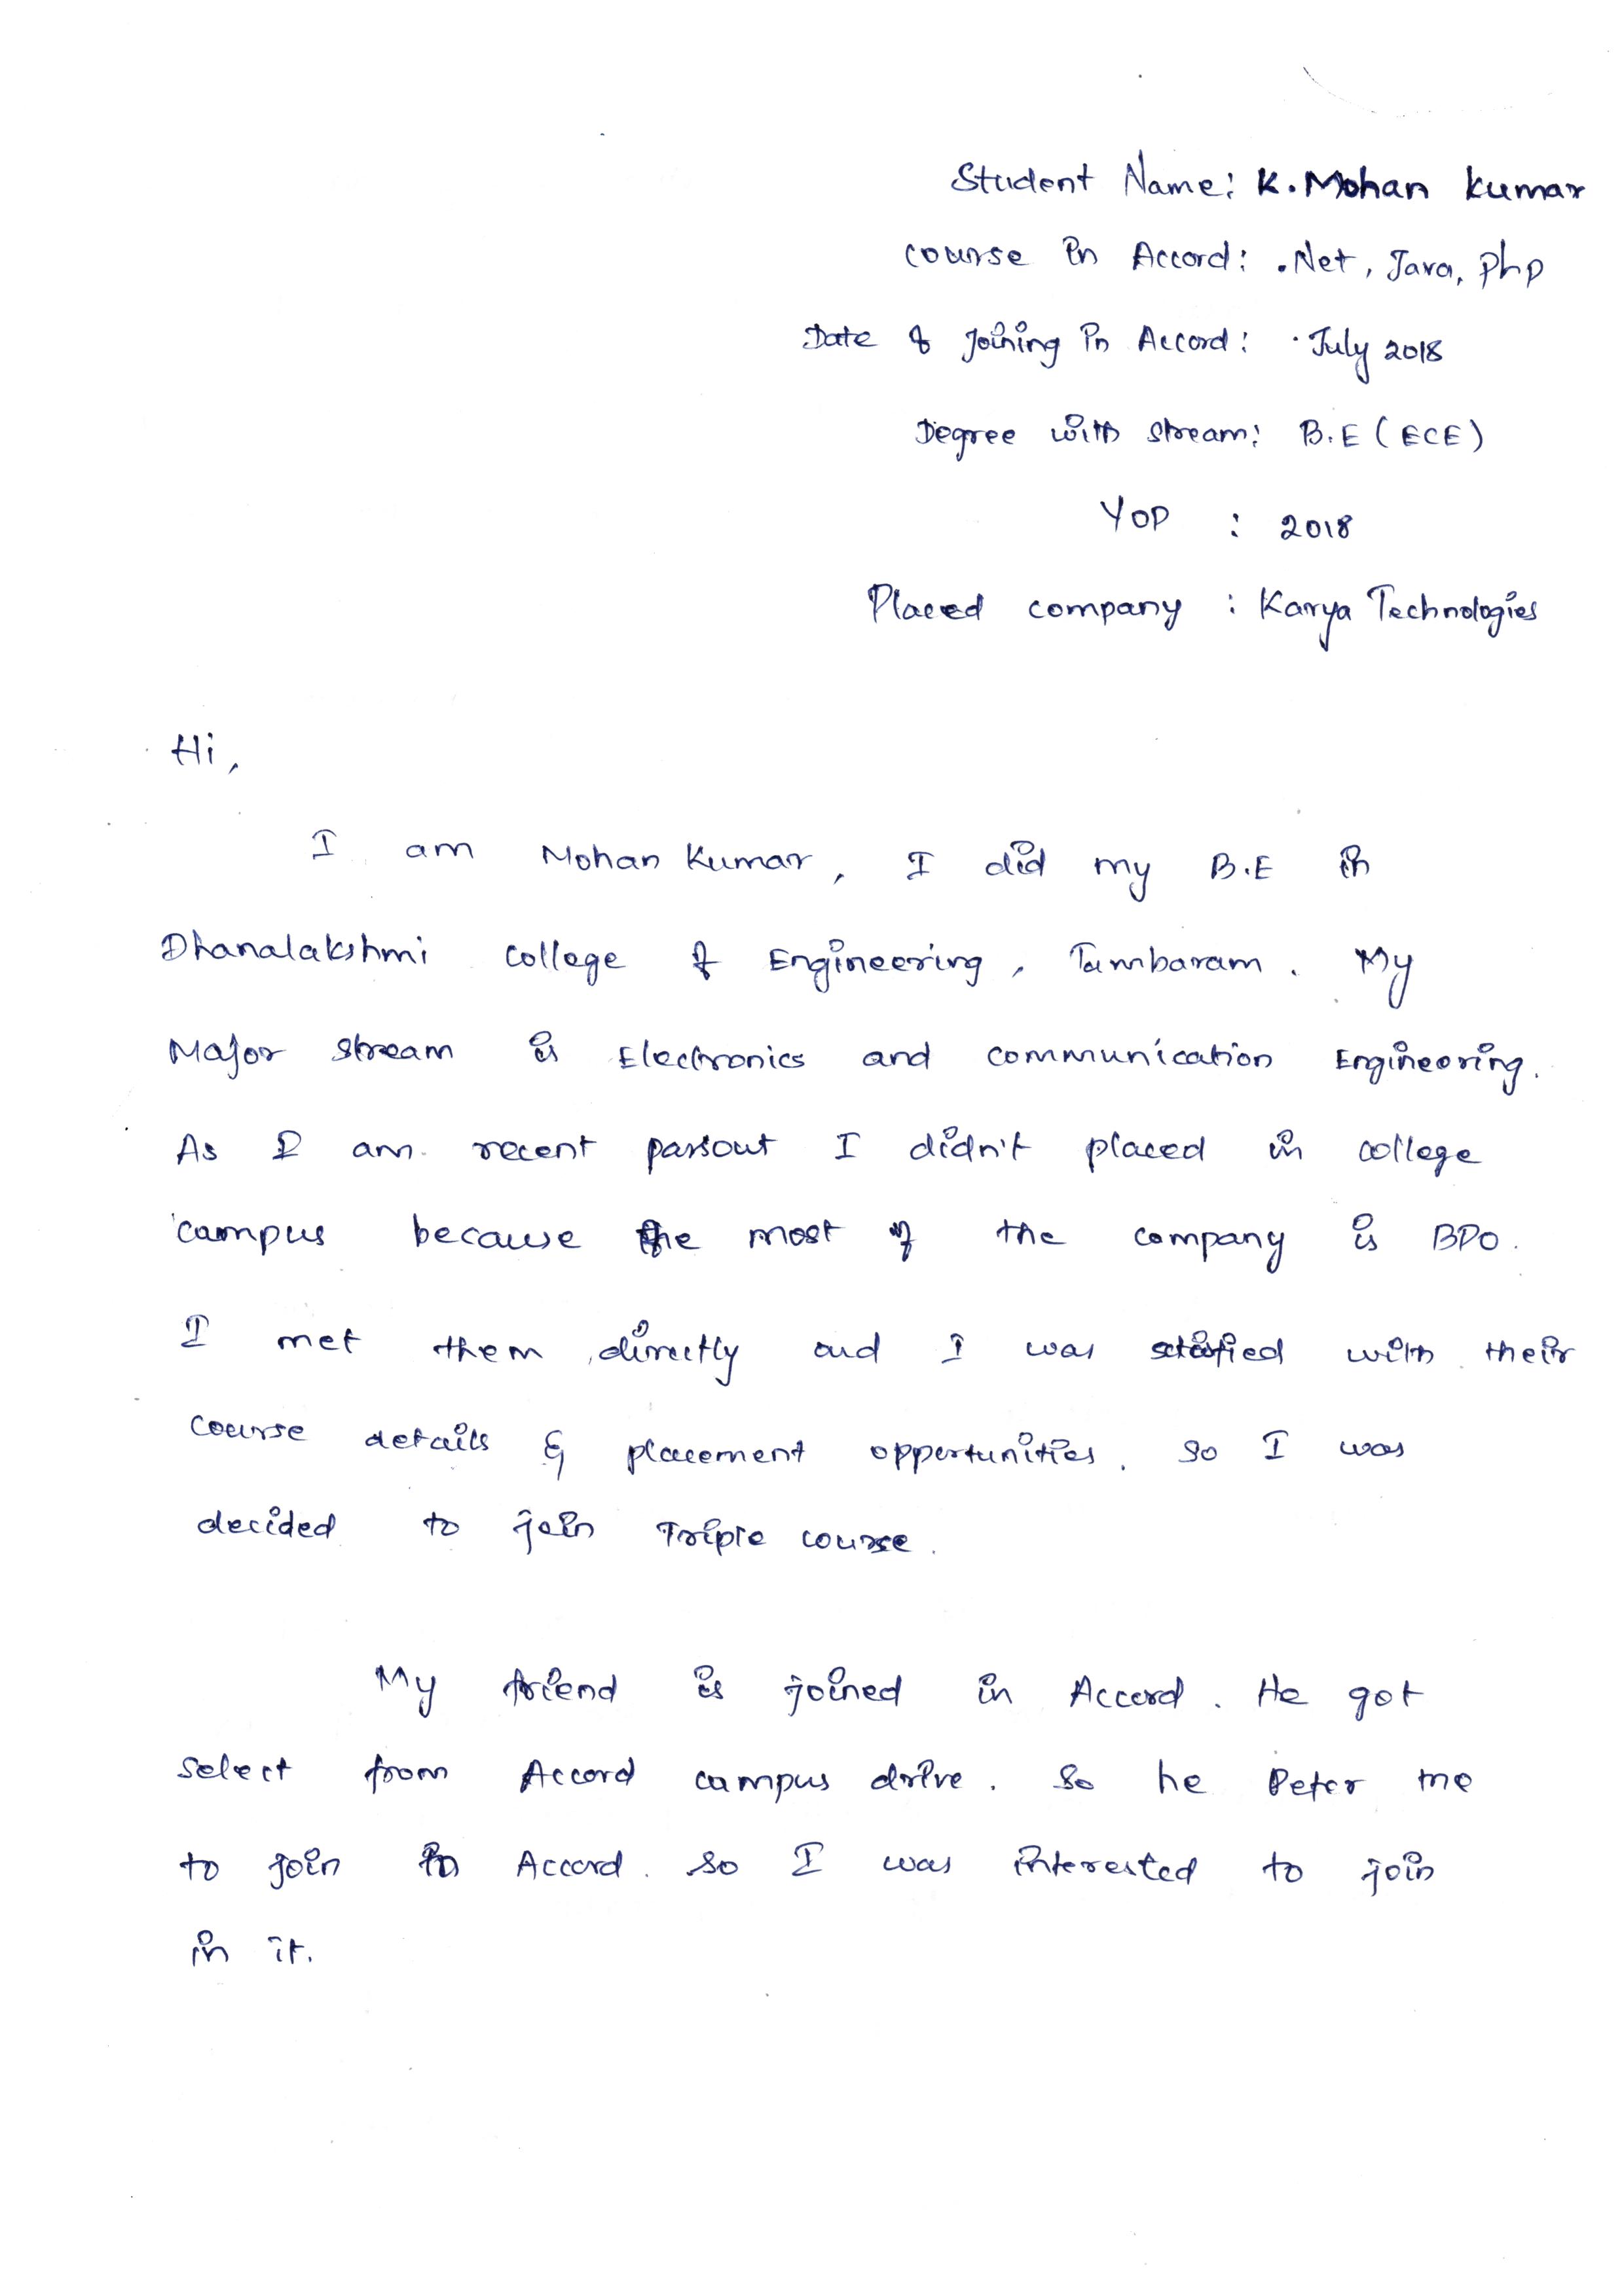 Student Name: K. Mohan kumar
course in Accord: .Net, Java, Php
Date of Joining in Accord: July 2018
Degree with stream: B.E (ECE)
YOP : 2018
Placed company : Karya Technologies
Hi,
I am Mohan Kumar, I did my B.E in
Dhanalakshmi college of Engineering, Tambaram. My
Major stream is Electronics and communication Engineering.
As I am recent passout I didn't placed in college
campus because the most of the company is BPO.
I met them directly and I was satisfied with their
course details & placement opportunities. So I was
decided to join Triple course.
My friend is joined in Accord. He got
select from Accord campus drive. So he Peter me
to join in Accord. So I was interested to join
in it.